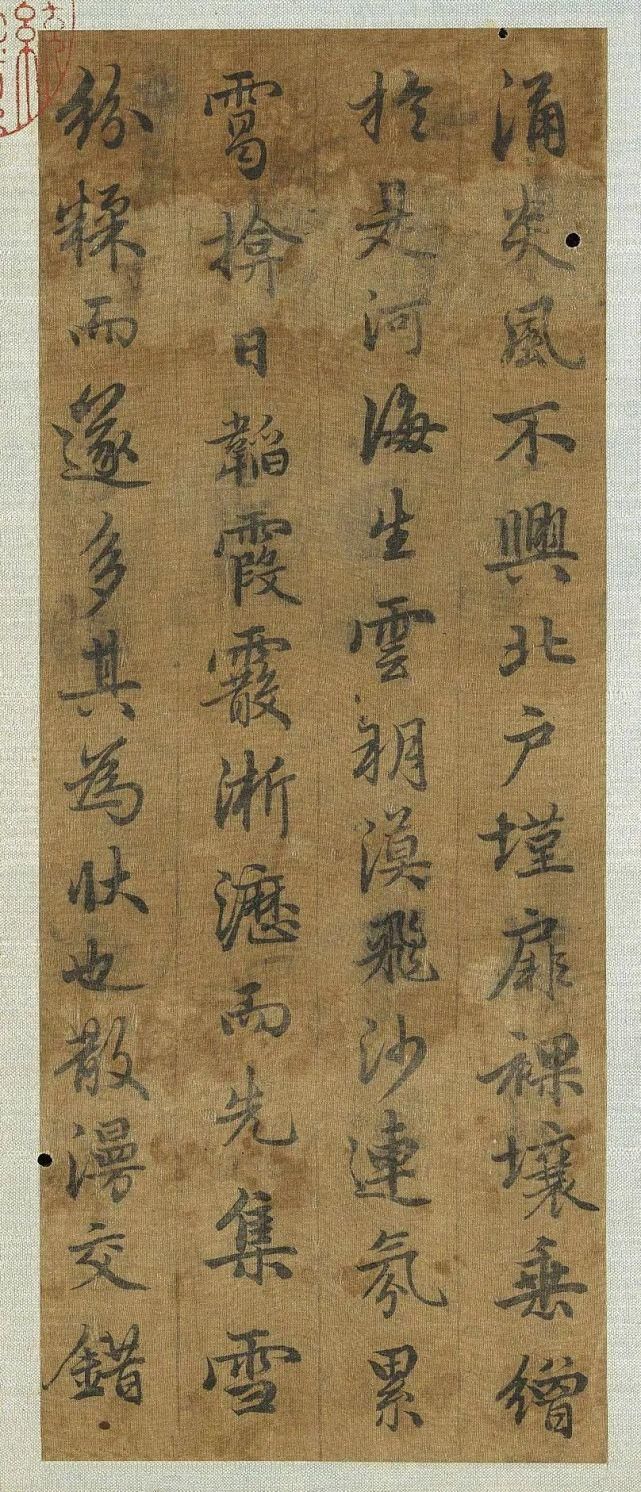 涌炎風不興北户墐扉裸壤垂繒
於是河海生雲朔漠飛沙連氛累
霭揜日韜霞霰淅瀝而先集雪
紛糅而遂多其為狀也散漫交錯